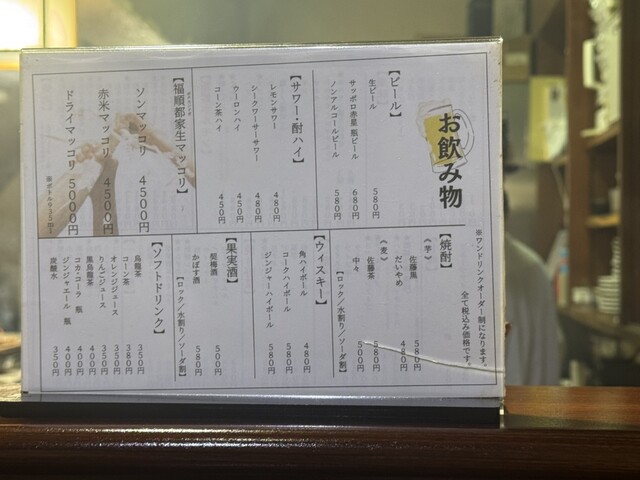 お飲み物
※ワンドリンクオーダー制になります。
全て税込み価格です。
【ビール】
生ビール 580円
サッポロ赤星 瓶ビール 680円
ノンアルコールビール 580円
【サワー・酎ハイ】
レモンサワー 480円
シークワーサーサワー 480円
ウーロンハイ 450円
コーン茶ハイ 450円
【福順都家生マッコリ】
ソンマッコリ 4500円
赤米マッコリ 4500円
ドライマッコリ 5000円
※ボトル935ml
【焼酎】
《芋》
佐藤黒 580円
だいやめ 480円
《麦》
佐藤茶 580円
中々 500円
【ロック/水割り/ソーダ割】
【ウィスキー】
角ハイボール 480円
コークハイボール 580円
ジンジャーハイボール 580円
【果実酒】
梅酒 500円
かぼす酒 580円
【ロック/水割り/ソーダ割】
【ソフトドリンク】
烏龍茶 350円
コーン茶 380円
オレンジジュース 350円
りんごジュース 350円
黒烏龍茶 400円
コカ・コーラ 瓶 400円
ジンジャエール 瓶 400円
炭酸水 350円